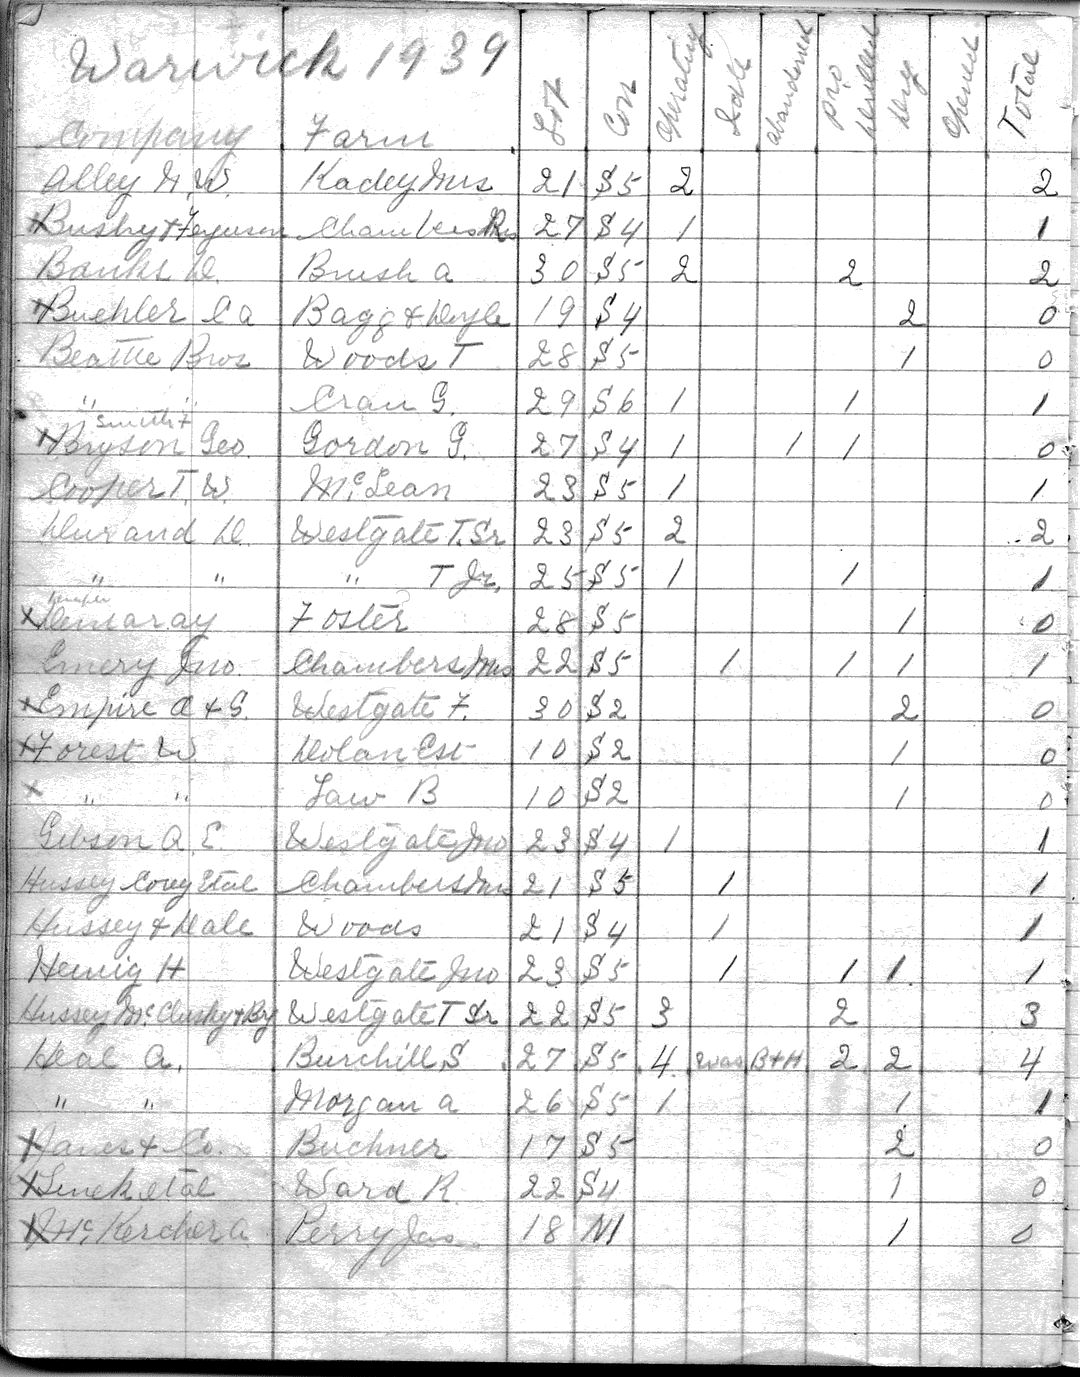 Warwick 1939
Company Farm Lot Con Operating Idle abandoned Pro Drilled Dry Opened Total
Alley H. W. Kadey Mrs 21 S5 2 2
x Bushy & Ferguson Chambers Mrs 27 S4 1 1
Banks D. Brush a 30 S5 2 2 2
x Buehler Ca Bagg & Doyle 19 S4 2 0
Beattie Bros Woods T 28 S5 1 0
" " Cran G. 29 S6 1 1 1
Smith &
x Bryson Geo. Gordon G. 27 S4 1 1 1 0
Cooper T. W. McLean 23 S5 1 1
Durand D. Westgate T. Sr 23 S5 2 2
" " " T Jr. 25 S5 1 1 1
x Demaray Foster 28 S5 1 0
Emery Jno. Chambers Mrs 22 S5 1 1 1 1
x Empire O & G. Westgate F. 30 S2 2 0
x Forest W Dolan Est 10 S2 1 0
x " " Law B 10 S2 1 0
Gibson A. E. Westgate Jno 23 S4 1 1
Hussey Covey Etal Chambers Mrs 21 S5 1 1
Hussey & Dale Woods 21 S4 1 1
Hennig H Westgate Jno 23 S5 1 1 1 1
Hussey McClusky & Bry Westgate T Sr 22 S5 3 2 3
Heal A. Burchill S 27 S5 4 was B+H 2 2 4
" " Morgan a 26 S5 1 1 1
x Janes & Co. Buchner 17 S5 2 0
x etal Ward R 22 S4 1 0
x McKercher a. Perry Jas. 18 N1 1 0